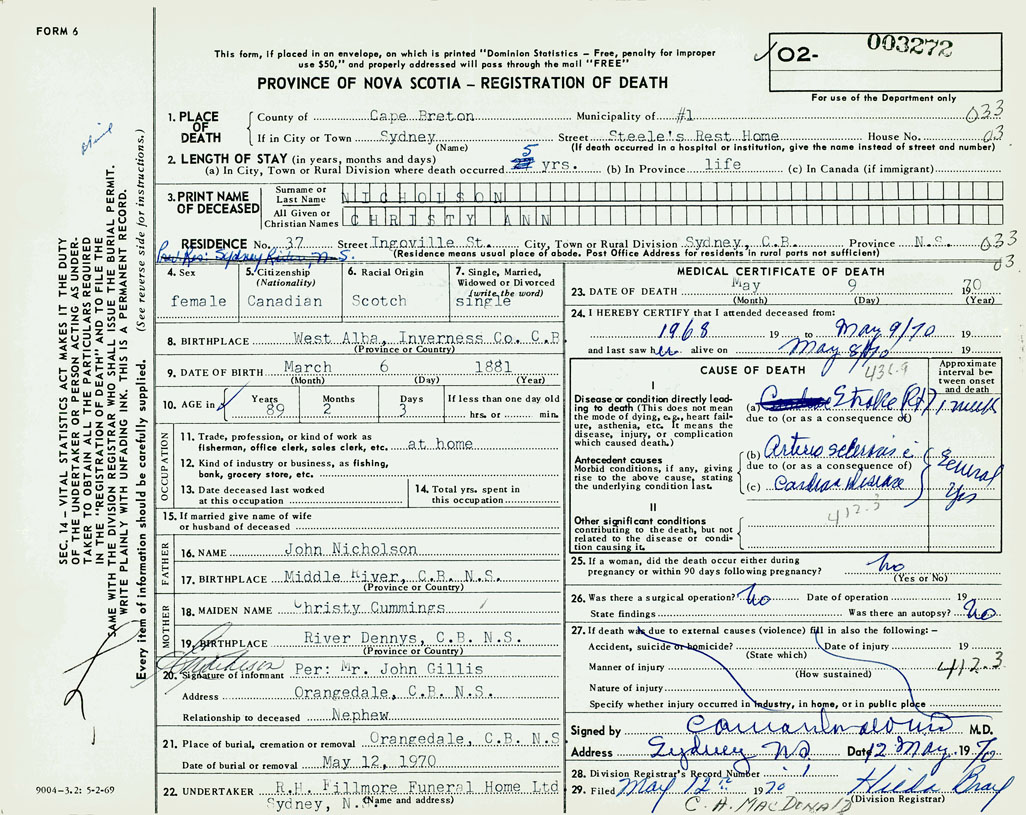 FORM 6
This form, if placed in an envelope, on which is printed "Dominion Statistics – Free, penalty for improper
use $50," and properly addressed will pass through the mail "FREE"
PROVINCE OF NOVA SCOTIA – REGISTRATION OF DEATH
02- 003272
For use of the Department only
SEC. 14 – VITAL STATISTICS ACT MAKES IT THE DUTY
OF THE UNDERTAKER OR PERSON ACTING AS UNDER-
TAKER TO OBTAIN ALL THE PARTICULARS REQUIRED
IN THE "REGISTRATION OF DEATH" AND TO FILE THE
SAME WITH THE DIVISION REGISTRAR WHO SHALL ISSUE THE BURIAL PERMIT.
WRITE PLAINLY WITH UNFADING INK. THIS IS A PERMANENT RECORD.
Every item of information should be carefully supplied. (See reverse side for instructions.)
1. PLACE OF DEATH
County of Cape Breton Municipality of #1 033
If in City or Town Sydney Street Steele's Rest Home House No. 03
(Name) (If death occurred in a hospital or institution, give the name instead of street and number)
2. LENGTH OF STAY (in years, months and days)
(a) In City, Town or Rural Division where death occurred 5 yrs. (b) In Province life (c) In Canada (if immigrant)
3. PRINT NAME OF DECEASED
Surname or Last Name NICHOLSON
All Given or Christian Names CHRISTY ANN
RESIDENCE No. 37 Street Ingoville St. City, Town or Rural Division Sydney, C.B. Province N.S. 033
(Residence means usual place of abode. Post Office Address for residents in rural parts not sufficient) 03
Res: Sydney River, N.S.
4. Sex female
5. Citizenship (Nationality) Canadian
6. Racial Origin Scotch
7. Single, Married, Widowed or Divorced (write the word) single
8. BIRTHPLACE West Alba, Inverness Co. C.B
(Province or Country)
9. DATE OF BIRTH March 6 1881
(Month) (Day) (Year)
10. AGE in Years 89 Months 2 Days 3 If less than one day old
hrs. or min.
OCCUPATION
11. Trade, profession, or kind of work as
fisherman, office clerk, sales clerk, etc. at home
12. Kind of industry or business, as fishing,
bank, grocery store, etc.
13. Date deceased last worked
at this occupation
14. Total yrs. spent in
this occupation
15. If married give name of wife
or husband of deceased
FATHER
16. NAME John Nicholson
17. BIRTHPLACE Middle River, C.B. N.S.
(Province or Country)
MOTHER
18. MAIDEN NAME Christy Cummings
19. BIRTHPLACE River Dennys, C.B. N.S.
(Province or Country)
20. Signature of informant Per: Mr. John Gillis
Address Orangedale, C.B. N.S.
Relationship to deceased Nephew
21. Place of burial, cremation or removal Orangedale, C.B. N.S
Date of burial or removal May 12, 1970
22. UNDERTAKER R.H. Fillmore Funeral Home Ltd
Sydney, N.S. (Name and address)
9004–3.2: 5-2-69
MEDICAL CERTIFICATE OF DEATH
23. DATE OF DEATH May 9 1970
(Month) (Day) (Year)
24. I HEREBY CERTIFY that I attended deceased from:
1968 19 to May 9/70 19
and last saw her alive on May 8/70 19
CAUSE OF DEATH 436.9
Approximate interval be-
tween onset
and death
I
Disease or condition directly lead-
ing to death (This does not mean
the mode of dying, e.g., heart fail-
ure, asthenia, etc. It means the
disease, injury, or complication
which caused death.)
(a) Stroke (R+) 1 week
due to (or as a consequence of)
Antecedent causes
Morbid conditions, if any, giving
rise to the above cause, stating
the underlying condition last.
(b) Arterio sclerosis c̄
due to (or as a consequence of)
(c) Cardiac Disease
Several
Yrs
412.3
II
Other significant conditions
contributing to the death, but not
related to the disease or condi-
tion causing it.
25. If a woman, did the death occur either during
pregnancy or within 90 days following pregnancy? No
(Yes or No)
26. Was there a surgical operation? No Date of operation 19
State findings Was there an autopsy? No
27. If death was due to external causes (violence) fill in also the following: –
Accident, suicide or homicide? Date of injury 19
(State which)
Manner of injury 412.3
(How sustained)
Nature of injury
Specify whether injury occurred in industry, in home, or in public place
Signed by M.D.
Address Sydney NS Date 12 May 1970
28. Division Registrar's Record Number
29. Filed May 12th 1970 Hilda Bray
C. A. MACDONALD (Division Registrar)